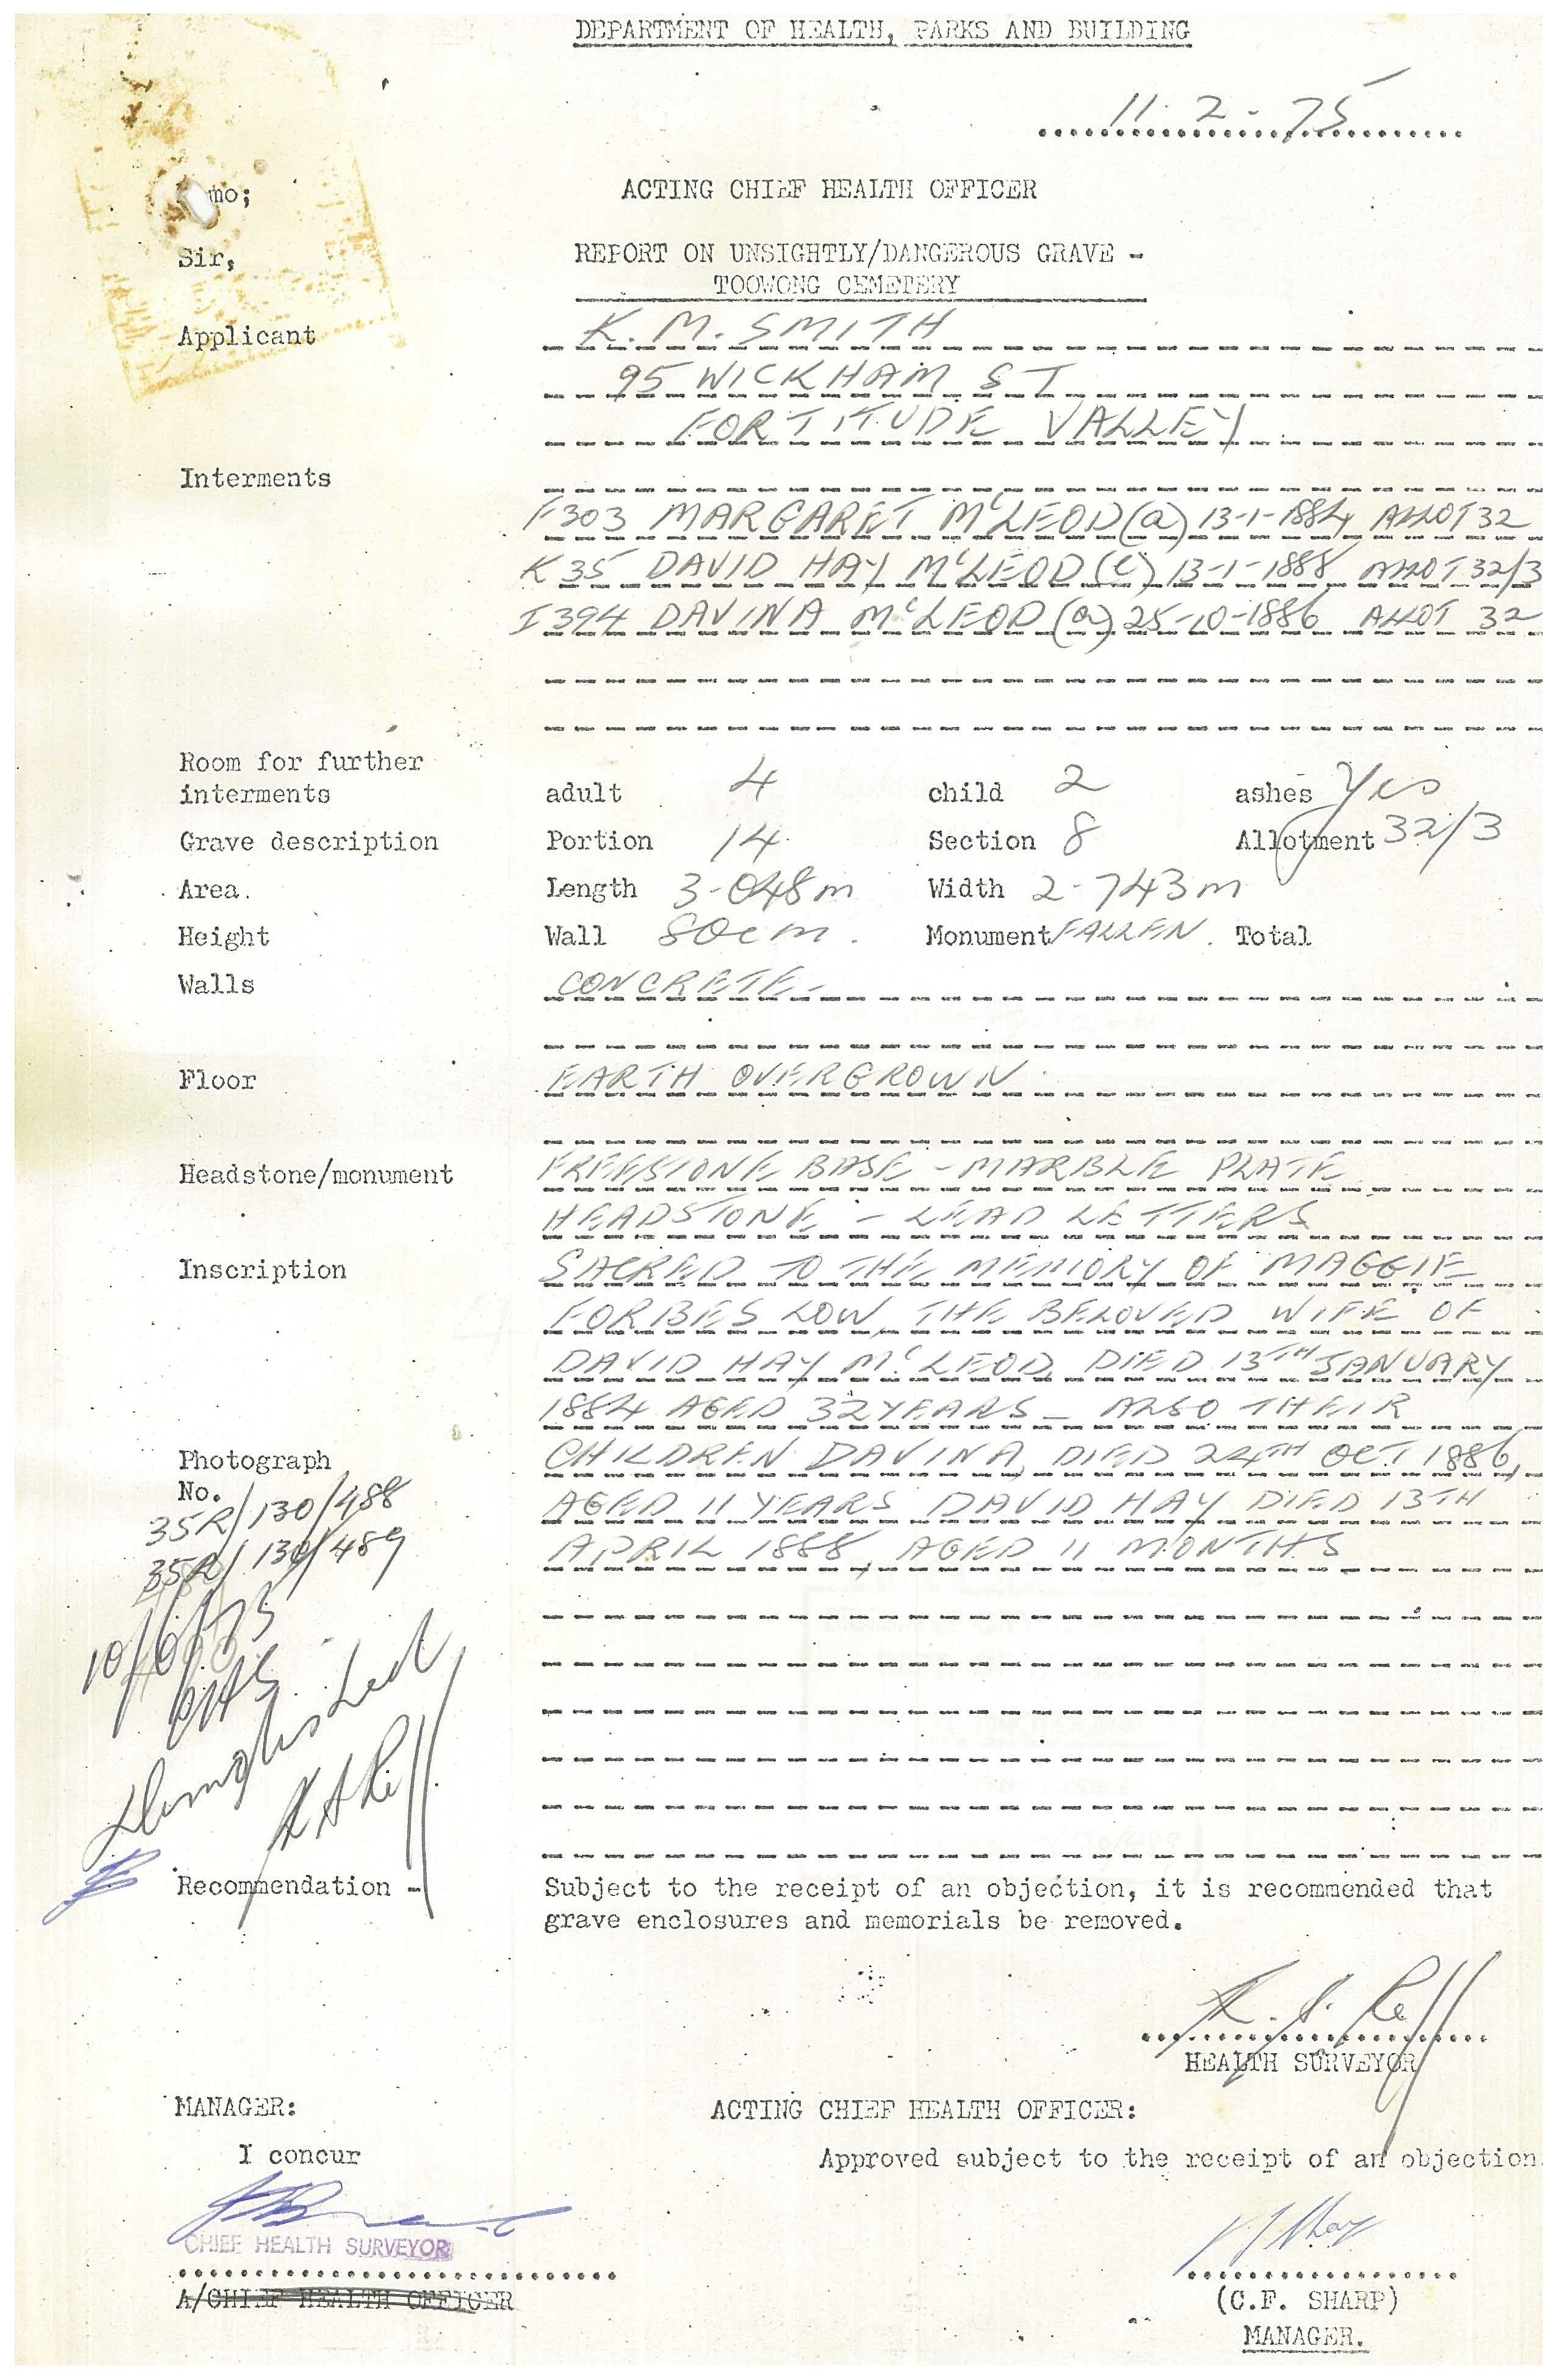 DEPARTMENT OF HEALTH, PARKS AND BUILDING
11.2-75
mo;
ACTING CHIEF HEALTH OFFICER
Sir,
REPORT ON UNSIGHTLY/DANGEROUS GRAVE -
TOOWONG CEMETERY
Applicant K. M. SMITH
95 WICKHAM ST
FORTITUDE VALLEY
Interments
F303 MARGARET McLEOD (a) 13-1-1884 ALLOT 32
K35 DAVID HAY McLEOD (c) 13-1-1888 ALLOT 32/3
I394 DAVINA McLEOD (a) 25-10-1886 ALLOT 32
Room for further
interments adult 4 child 2 ashes Yes
Grave description Portion 14 Section 8 Allotment 32/3
Area. Length 3-048m Width 2-743m
Height Wall 80cm. Monument FALLEN. Total
Walls CONCRETE-
Floor EARTH OVERGROWN.
Headstone/monument FREESTONE BASE - MARBLE PLATE
HEADSTONE - LEAD LETTERS
Inscription SACRED TO THE MEMORY OF MAGGIE
FORBES LOW, THE BELOVED WIFE OF
DAVID HAY McLEOD, DIED 13TH JANUARY
1884 AGED 32 YEARS - ALSO THEIR
Photograph CHILDREN DAVINA, DIED 24TH OCT 1886,
No. AGED 11 YEARS DAVID HAY DIED 13TH
35R/130/488
APRIL 1888, AGED 11 MONTHS
35R/130/489
10/6/75
Recommendation - Subject to the receipt of an objection, it is recommended that
grave enclosures and memorials be removed.
HEALTH SURVEYOR
MANAGER: ACTING CHIEF HEALTH OFFICER:
I concur Approved subject to the receipt of an objection.
CHIEF HEALTH SURVEYOR
A/CHIEF HEALTH OFFICER
(C.F. SHARP)
MANAGER.